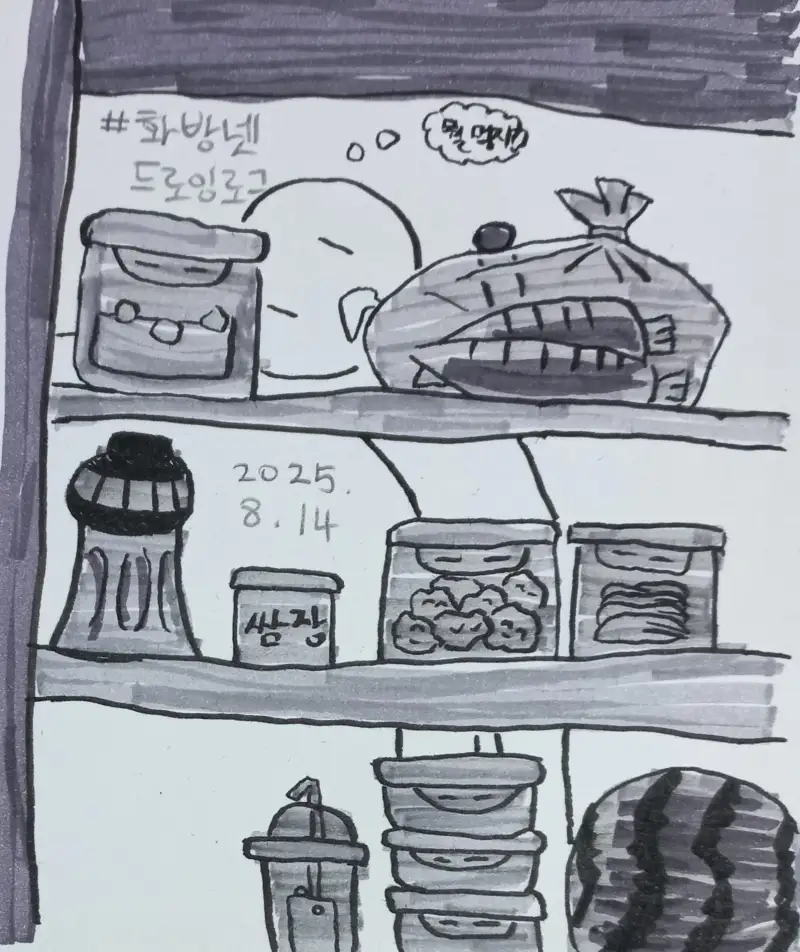 #화방넷
드로잉로그
뭘 먹지?
2025.
8.14
쌈장